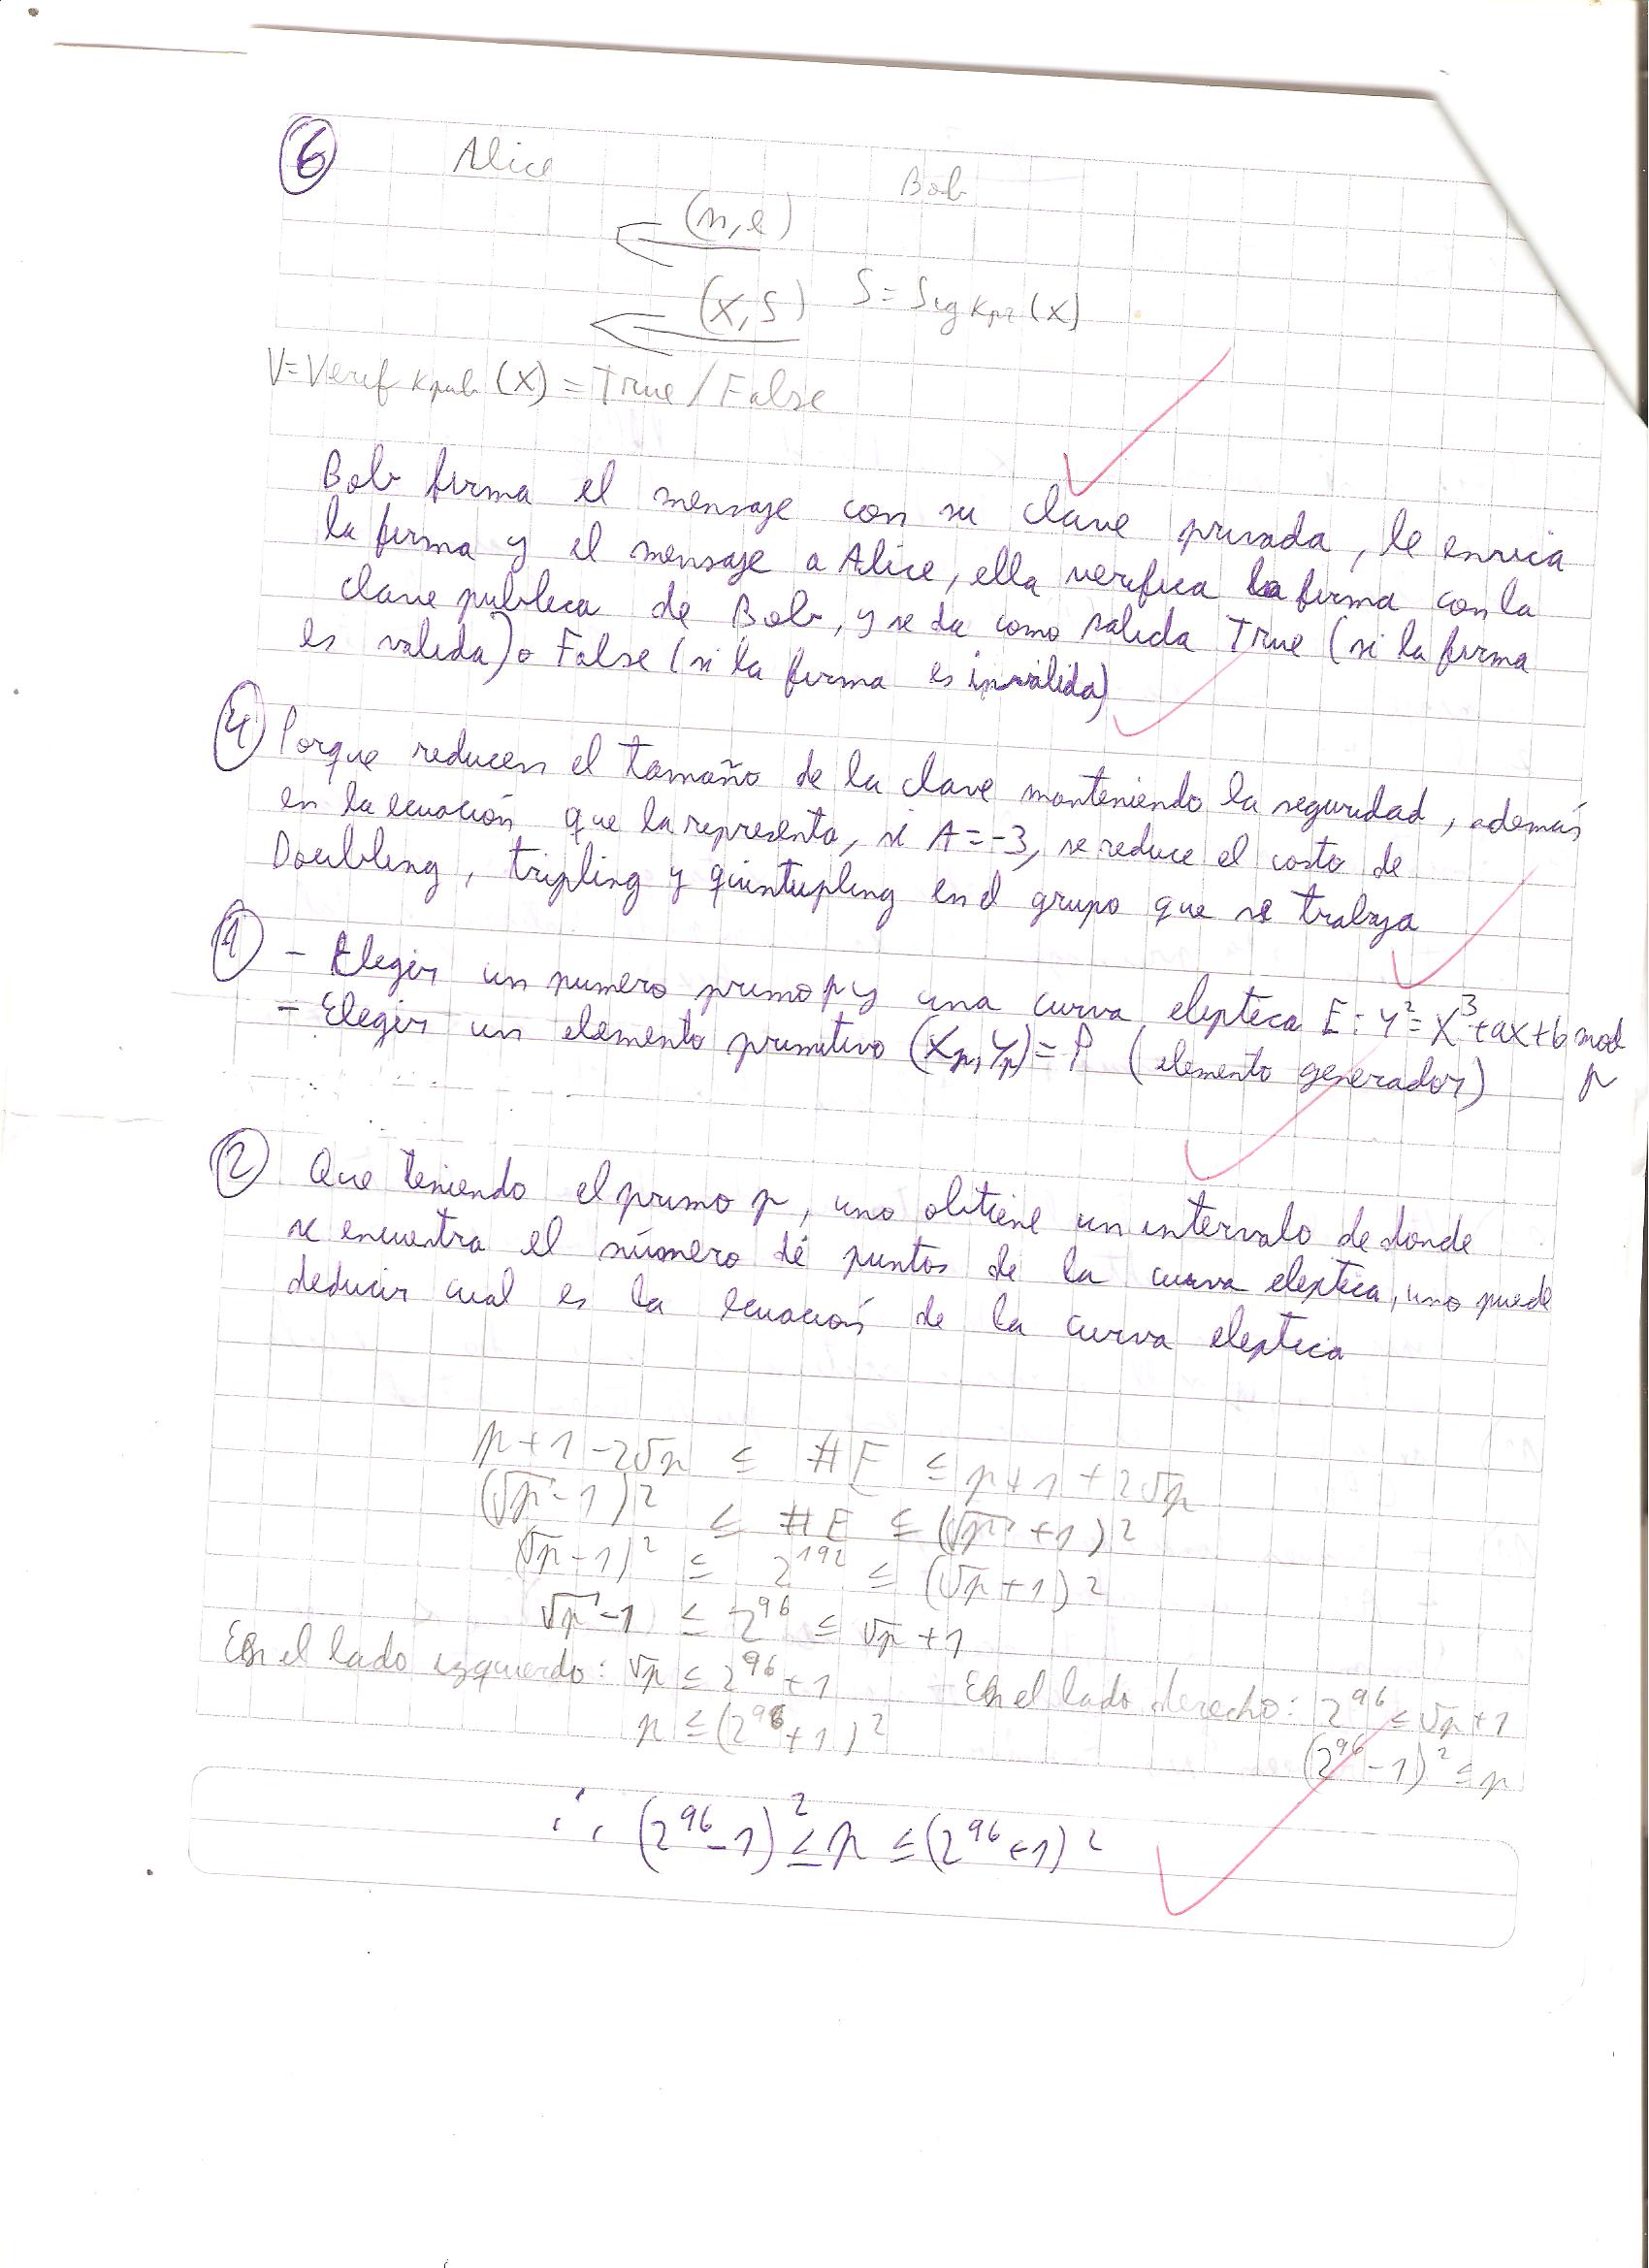 6 Alice Bob
(n,e)
(X,S) S=SigKpr(X)
V=VerifKpub(X)=True/False
Bob firma el mensaje con su clave privada, le envia
la firma y el mensaje a Alice, ella verifica la firma con la
clave publica de Bob, y se da como salida True (si la firma
es valida) o False (si la firma es inválida)
4 Porque reducen el tamaño de la clave manteniendo la seguridad, además
en la ecuación que la representa, si A=-3, se reduce el costo de
Doubling, tripling y quintupling en el grupo que se trabaja
1 - Elegir un numero primo p y una curva eleptica E: Y²=X³+ax+b mod p
- Elegir un elemento primitivo (Xp,Yp)=P (elemento generador)
2 Que teniendo el primo p, uno obtiene un intervalo de donde
se encuentra el número de puntos de la curva eleptica, uno puede
deducir cual es la ecuación de la curva eleptica
p+1-2√p ≤ #E ≤ p+1+2√p
(√p-1)² ≤ #E ≤ (√p+1)²
(√p-1)² ≤ 2¹⁹² ≤ (√p+1)²
√p-1 ≤ 2⁹⁶ ≤ √p+1
En el lado izquierdo: √p ≤ 2⁹⁶+1 - En el lado derecho: 2⁹⁶ ≤ √p+1
p ≤ (2⁹⁶+1)² (2⁹⁶-1)² ≤ p
∴ (2⁹⁶-1)² ≤ p ≤ (2⁹⁶+1)²